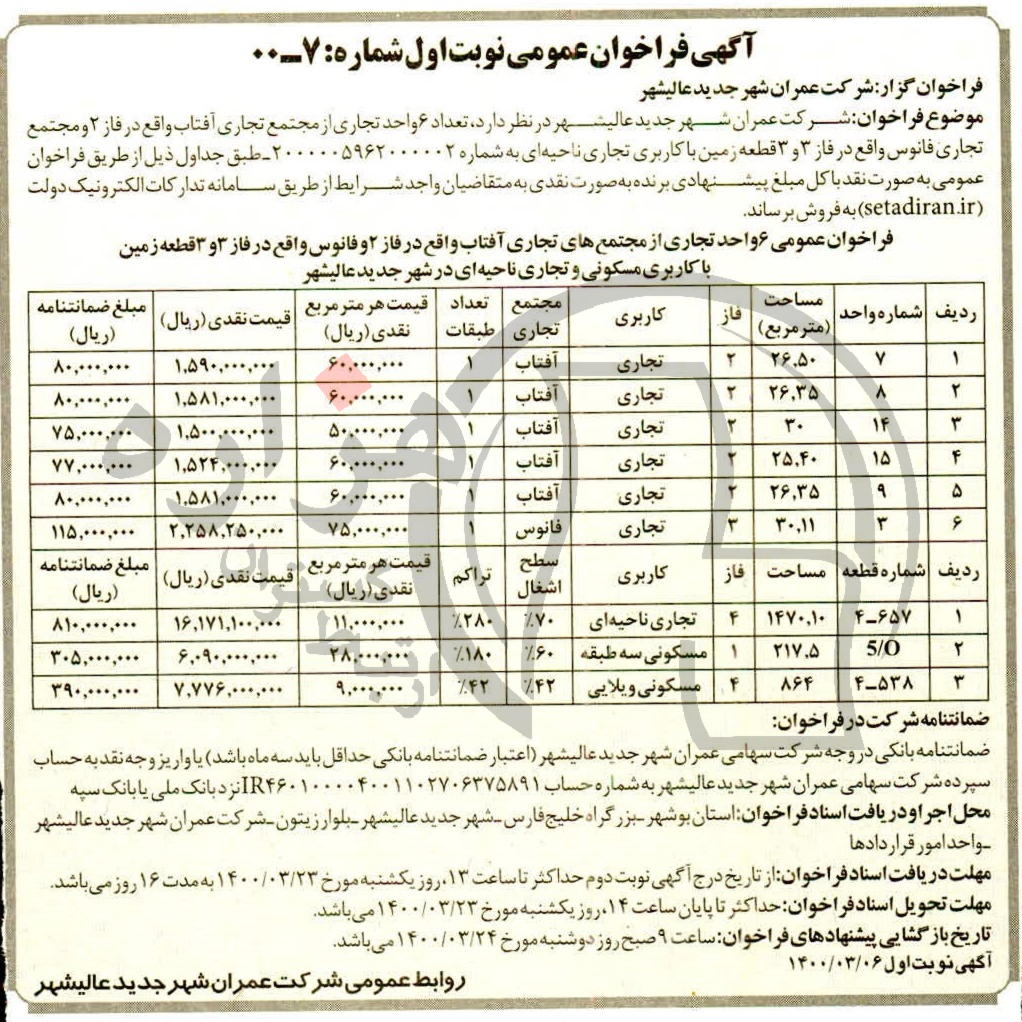 آگهی فراخوان عمومی نوبت اول شماره: ۷ــ۰۰
فراخوان گزار: شرکت عمران شهر جدید عالیشهر
موضوع فراخوان: شرکت عمران شهر جدید عالیشهر در نظر دارد، تعداد ۶ واحد تجاری از مجتمع تجاری آفتاب واقع در فاز ۲ و مجتمع
تجاری فانوس واقع در فاز ۳ و ۳ قطعه زمین با کاربری تجاری ناحیه‌ای به شماره ۲۰۰۰۰۰۵۹۶۲۰۰۰۰۰۲ـ طبق جداول ذیل از طریق فراخوان
عمومی به صورت نقد با کل مبلغ پیشنهادی برنده به صورت نقدی به متقاضیان واجد شرایط از طریق سامانه تدارکات الکترونیک دولت
(setadiran.ir) به فروش برساند.
فراخوان عمومی ۶ واحد تجاری از مجتمع های تجاری آفتاب واقع در فاز ۲ و فانوس واقع در فاز ۳ و ۳ قطعه زمین
با کاربری مسکونی و تجاری ناحیه ای در شهر جدید عالیشهر
ردیف شماره واحد مساحت (مترمربع) فاز کاربری مجتمع تجاری تعداد طبقات قیمت هر مترمربع نقدی (ریال) قیمت نقدی (ریال) مبلغ ضمانتنامه (ریال)
۱ ۷ ۲۶،۵۰ ۲ تجاری آفتاب ۱ ۶۰,۰۰۰,۰۰۰ ۱,۵۹۰,۰۰۰,۰۰۰ ۸۰,۰۰۰,۰۰۰
۲ ۸ ۲۶،۳۵ ۲ تجاری آفتاب ۱ ۶۰,۰۰۰,۰۰۰ ۱,۵۸۱,۰۰۰,۰۰۰ ۸۰,۰۰۰,۰۰۰
۳ ۱۴ ۳۰ ۲ تجاری آفتاب ۱ ۵۰,۰۰۰,۰۰۰ ۱,۵۰۰,۰۰۰,۰۰۰ ۷۵,۰۰۰,۰۰۰
۴ ۱۵ ۲۵،۴۰ ۲ تجاری آفتاب ۱ ۶۰,۰۰۰,۰۰۰ ۱,۵۲۴,۰۰۰,۰۰۰ ۷۷,۰۰۰,۰۰۰
۵ ۹ ۲۶،۳۵ ۲ تجاری آفتاب ۱ ۶۰,۰۰۰,۰۰۰ ۱,۵۸۱,۰۰۰,۰۰۰ ۸۰,۰۰۰,۰۰۰
۶ ۳ ۳۰،۱۱ ۳ تجاری فانوس ۱ ۷۵,۰۰۰,۰۰۰ ۲,۲۵۸,۲۵۰,۰۰۰ ۱۱۵,۰۰۰,۰۰۰
ردیف شماره قطعه مساحت فاز کاربری سطح اشغال تراکم قیمت هر مترمربع نقدی (ریال) قیمت نقدی (ریال) مبلغ ضمانتنامه (ریال)
۱ ۶۵۷ــ۴ ۱۴۷۰،۱۰ ۴ تجاری ناحیه‌ای ۷۰٪ ۲۸۰٪ ۱۱,۰۰۰,۰۰۰ ۱۶,۱۷۱,۱۰۰,۰۰۰ ۸۱۰,۰۰۰,۰۰۰
۲ 5/O ۲۱۷،۵ ۱ مسکونی سه طبقه ۶۰٪ ۱۸۰٪ ۲۸,۰۰۰,۰۰۰ ۶,۰۹۰,۰۰۰,۰۰۰ ۳۰۵,۰۰۰,۰۰۰
۳ ۵۳۸ــ۴ ۸۶۴ ۴ مسکونی ویلایی ۴۲٪ ۴۲٪ ۹,۰۰۰,۰۰۰ ۷,۷۷۶,۰۰۰,۰۰۰ ۳۹۰,۰۰۰,۰۰۰
ضمانتنامه شرکت در فراخوان:
ضمانتنامه بانکی در وجه شرکت سهامی عمران شهر جدید عالیشهر (اعتبار ضمانتنامه بانکی حداقل باید سه ماه باشد) یا واریز وجه نقد به حساب
سپرده شرکت سهامی عمران شهر جدید عالیشهر به شماره حساب IR۴۶۰۱۰۰۰۰۴۰۰۱۱۰۲۷۰۶۳۷۵۸۹۱ نزد بانک ملی یا بانک سپه
محل اجرا و دریافت اسناد فراخوان: استان بوشهر ـ بزرگراه خلیج فارس ـ شهر جدید عالیشهر ـ بلوار زیتون ـ شرکت عمران شهر جدید عالیشهر
ـ واحد امور قراردادها
مهلت دریافت اسناد فراخوان: از تاریخ درج آگهی نوبت دوم حداکثر تا ساعت ۱۳، روز یکشنبه مورخ ۱۴۰۰/۰۳/۲۳ به مدت ۱۶ روز می باشد.
مهلت تحویل اسناد فراخوان: حداکثر تا پایان ساعت ۱۴، روز یکشنبه مورخ ۱۴۰۰/۰۳/۲۳ می باشد.
تاریخ بازگشایی پیشنهادهای فراخوان: ساعت ۹ صبح روز دوشنبه مورخ ۱۴۰۰/۰۳/۲۴ می باشد.
آگهی نوبت اول ۱۴۰۰/۰۳/۰۶
روابط عمومی شرکت عمران شهر جدید عالیشهر